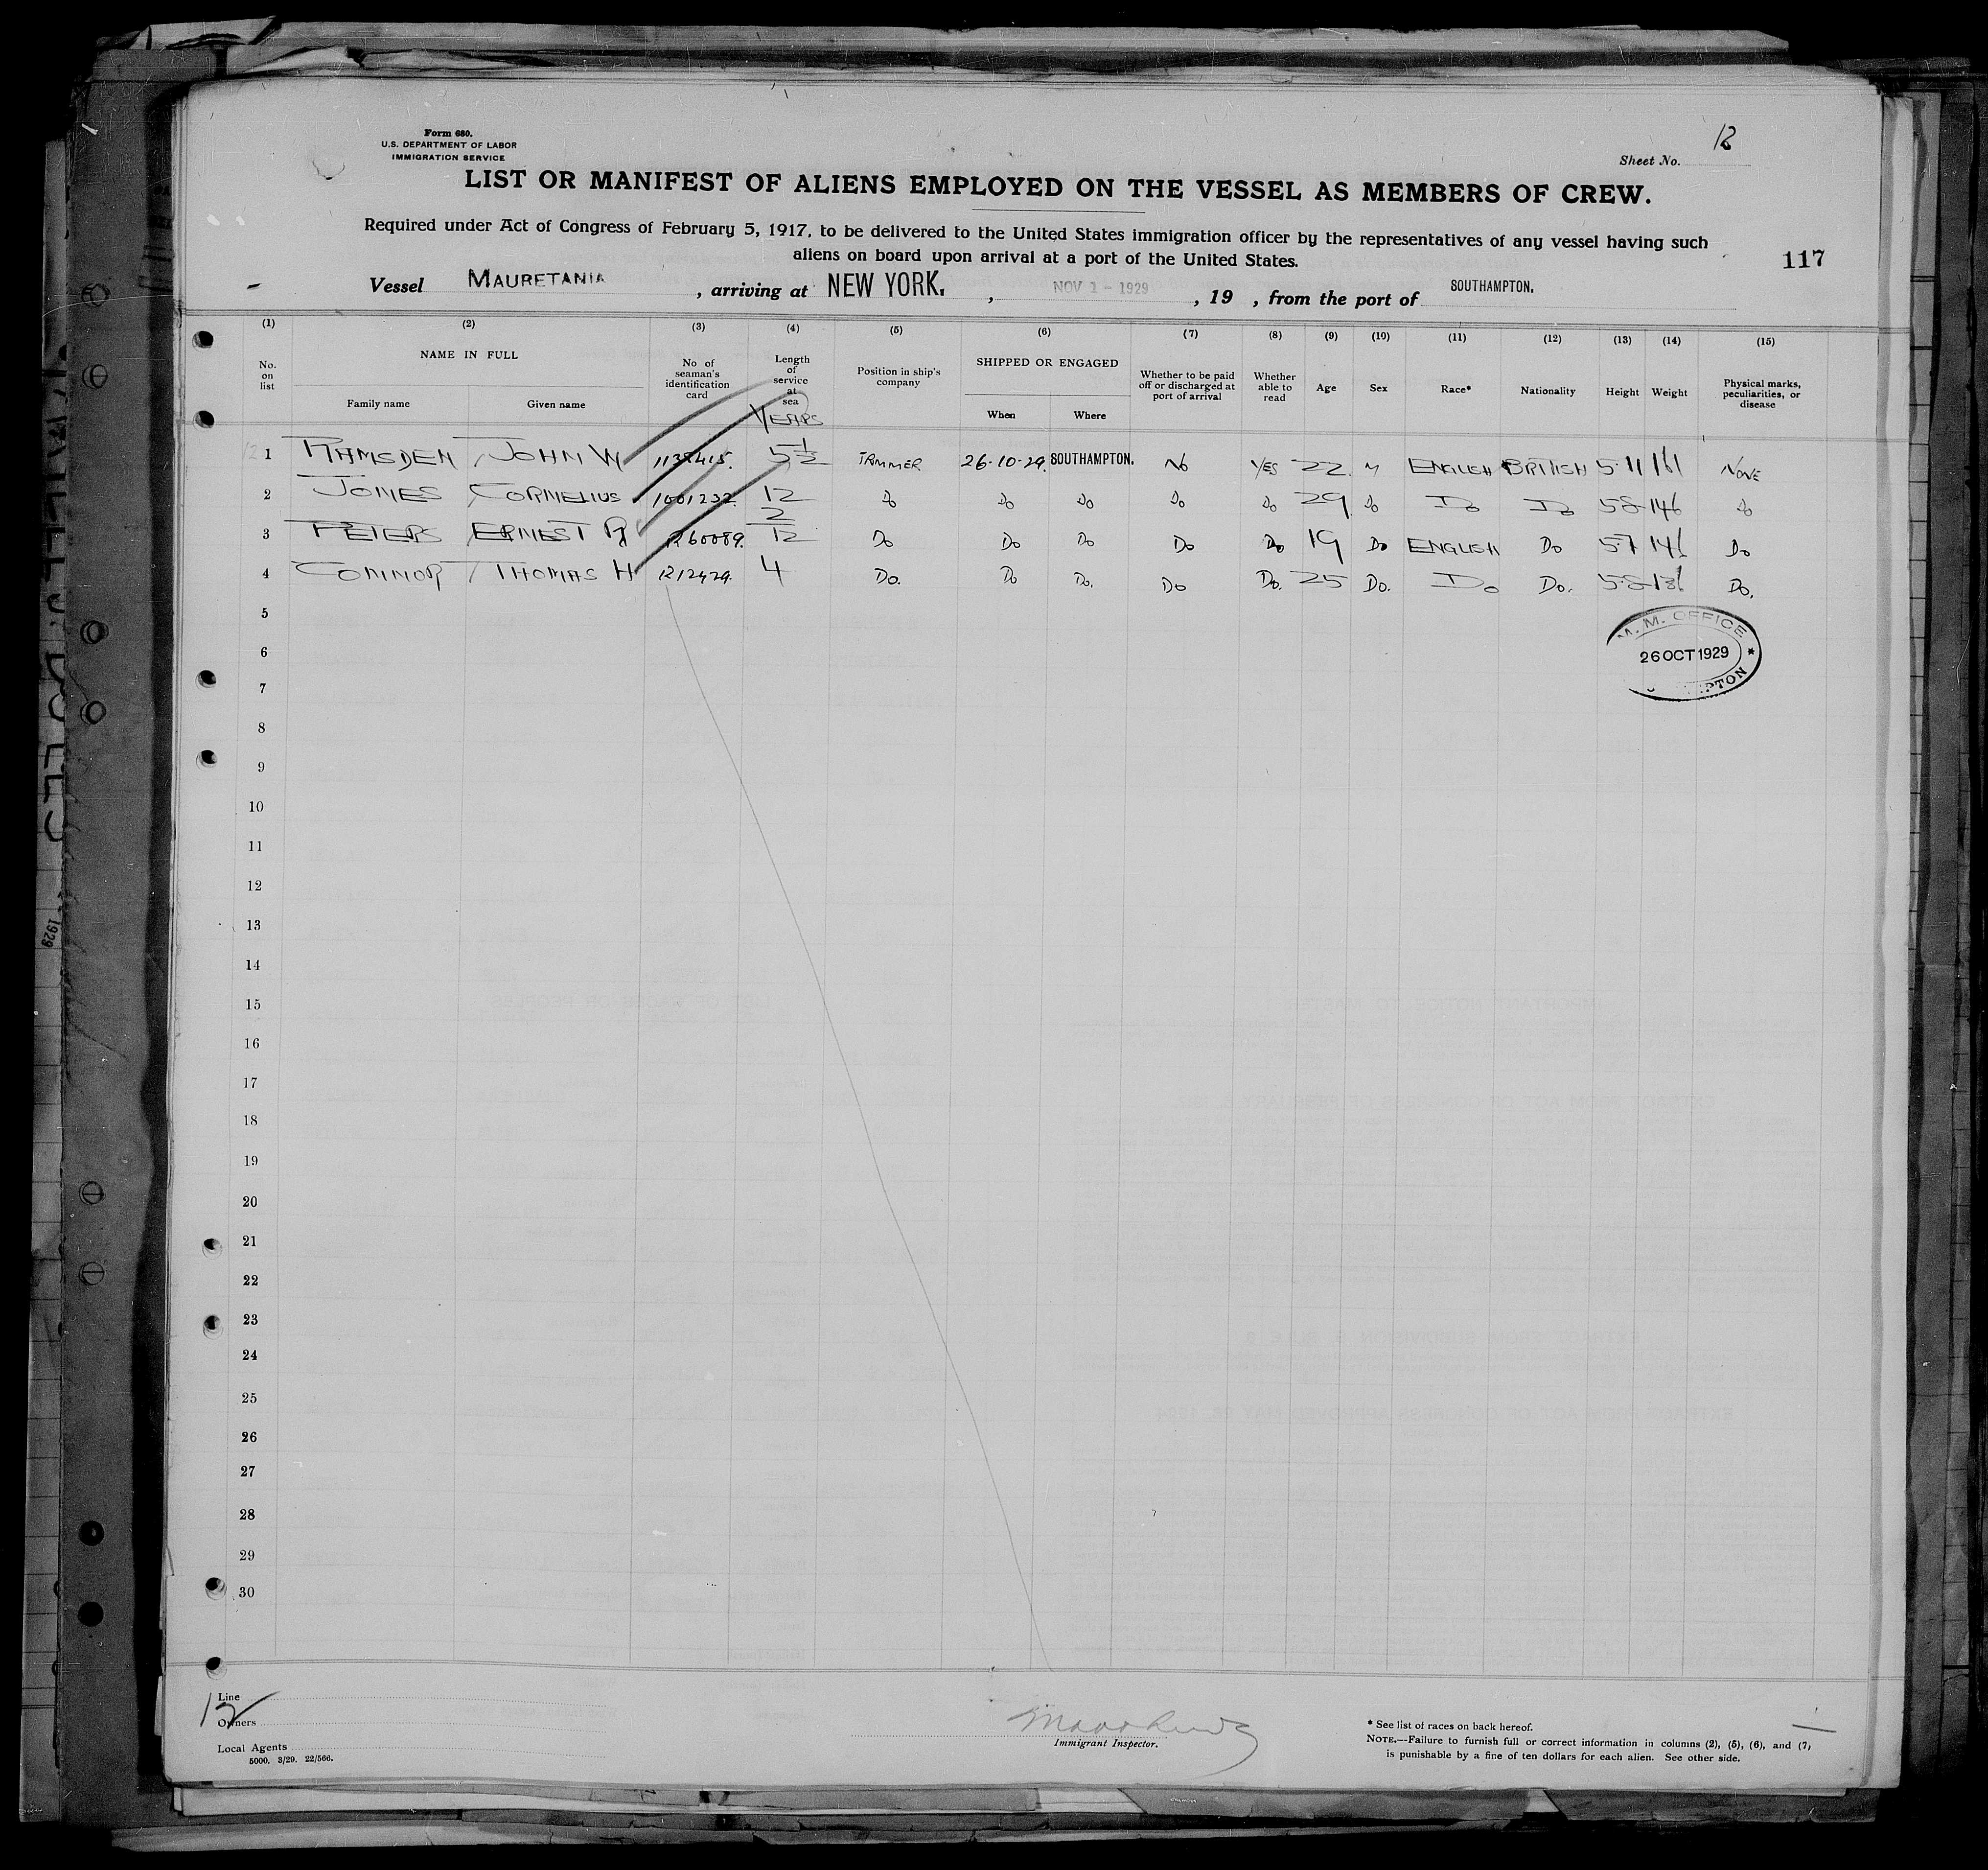 Form 680.
U.S. DEPARTMENT OF LABOR
IMMIGRATION SERVICE
Sheet No. 12
LIST OR MANIFEST OF ALIENS EMPLOYED ON THE VESSEL AS MEMBERS OF CREW.
Required under Act of Congress of February 5, 1917, to be delivered to the United States immigration officer by the representatives of any vessel having such
aliens on board upon arrival at a port of the United States.
117
Vessel MAURETANIA , arriving at NEW YORK. , NOV 1 - 1929 , 19 , from the port of SOUTHAMPTON.
(1) (2) (3) (4) (5) (6) (7) (8) (9) (10) (11) (12) (13) (14) (15)
No. on list NAME IN FULL Family name Given name No of seaman's identification card Length of service at sea YEARS Position in ship's company SHIPPED OR ENGAGED When Where Whether to be paid off or discharged at port of arrival Whether able to read Age Sex Race* Nationality Height Weight Physical marks, peculiarities, or disease
1 RAMSDEN JOHN W 5 1/2 TRIMMER 26-10-29. SOUTHAMPTON. NO YES 22 M ENGLISH BRITISH 5-11 161 NONE
2 JONES CORNELIUS 1001232. 12 Do Do Do Do Do 29 Do Do Do 5-8 146 Do
3 PETERS ERNEST R 1260089. 2/12 Do Do Do Do Do 19 Do ENGLISH Do 5-7 141 Do
4 CONNOR THOMAS H 1212429. 4 Do. Do Do. Do Do. 25 Do. Do Do. 5-8 136 Do.
5
6
7
M.M. OFFICE
26 OCT 1929
8
9
10
11
12
13
14
15
16
17
18
19
20
21
22
23
24
25
26
27
28
29
30
Line
12
Owners
Local Agents
5000. 3/29. 22/566.
Immigrant Inspector.
* See list of races on back hereof.
NOTE.—Failure to furnish full or correct information in columns (2), (5), (6), and (7)
is punishable by a fine of ten dollars for each alien. See other side.
1929